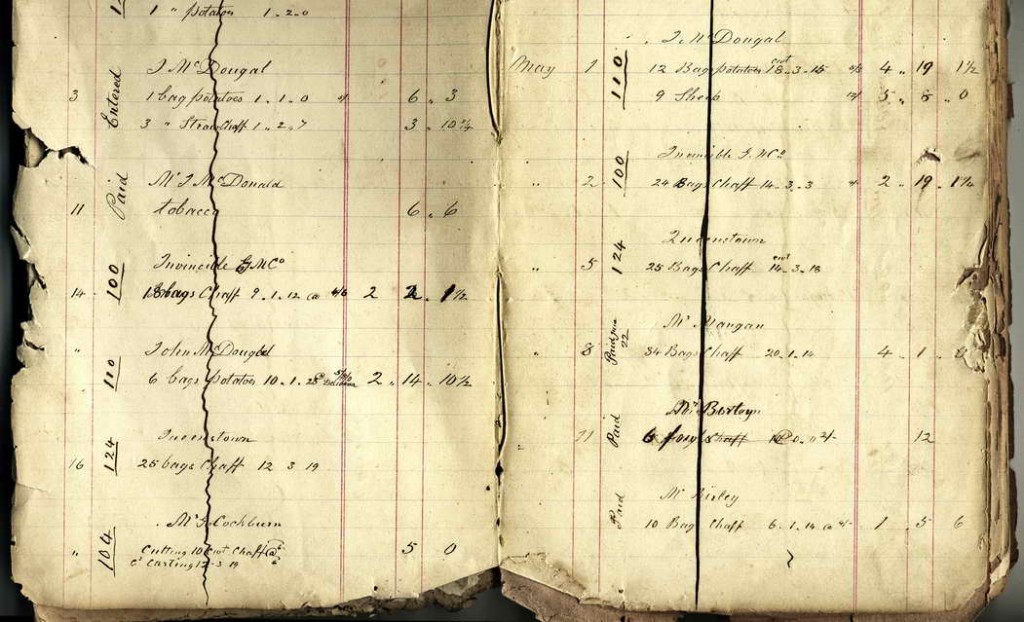 1 " potatoes 1.2.0
Entered
J McDougal
3 1 bag potatoes 1.1.0 6 . 3
3 " Straw Chaff 1.2.7 3 . 10
Paid
Mr J McDonald
11 tobacco 6 . 6
100
Invincible G M Co
14 bags Chaff 9.1.12 @ 4/6 2 2 . 1½
110
" John McDougal
6 bags potatoes 10.1.25 2 . 14 . 10½
124
Queenstown
16 25 bags Chaff 12 3 19
104
Mr J Cockburn
" Cutting 10 cwt Chaff @ 5 0
Carting 12.3.19
110
J McDougal
May 1 12 Bags potatoes cwt 18.3.15 4 " 19 1½
9 Sheep 5 " 8 . 0
100
Invincible G. M Co
" 2 24 Bags Chaff 14.3.3 2 . 19 . 1¼
124
Queenstown
" 5 25 Bags Chaff cwt 14.3.18
Paid June 22
Mr Mangan
" 8 34 Bags Chaff 20.1.14 4 . 1 .
Paid
21 6 Chaff 12
Paid
Mr
10 Bags Chaff 6.1.14 @ 4/- 1 . 5 6